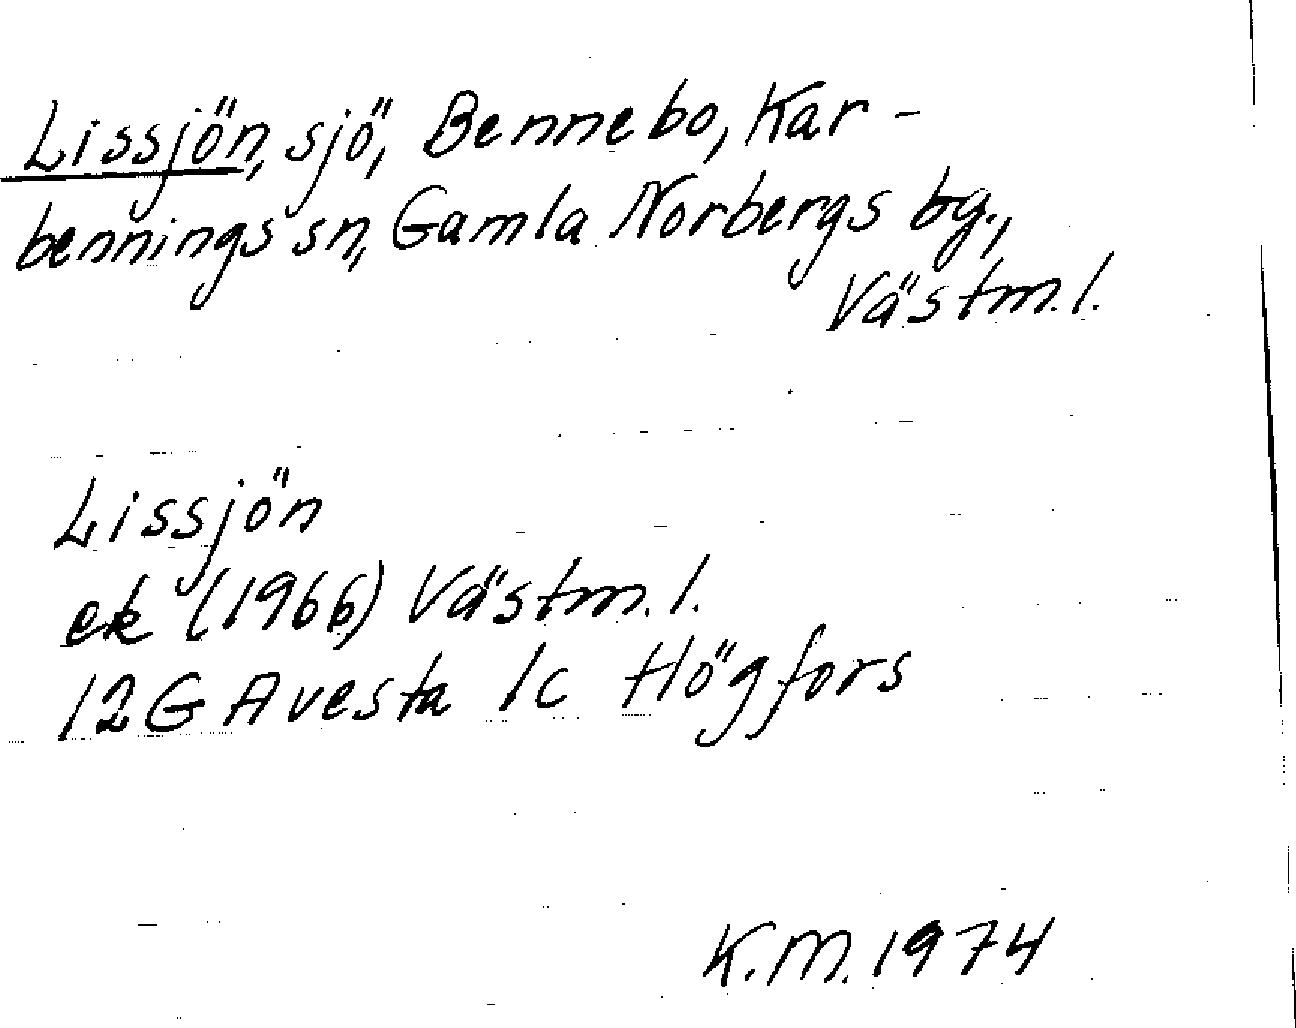 Lissjön, sjö, Bennebo, Kar-
bennings sn, Gamla Norbergs bg.,
Västm. l.
Lissjön
ek (1966) Västm. l.
12G Avesta 1c Högfors
K.M. 1974